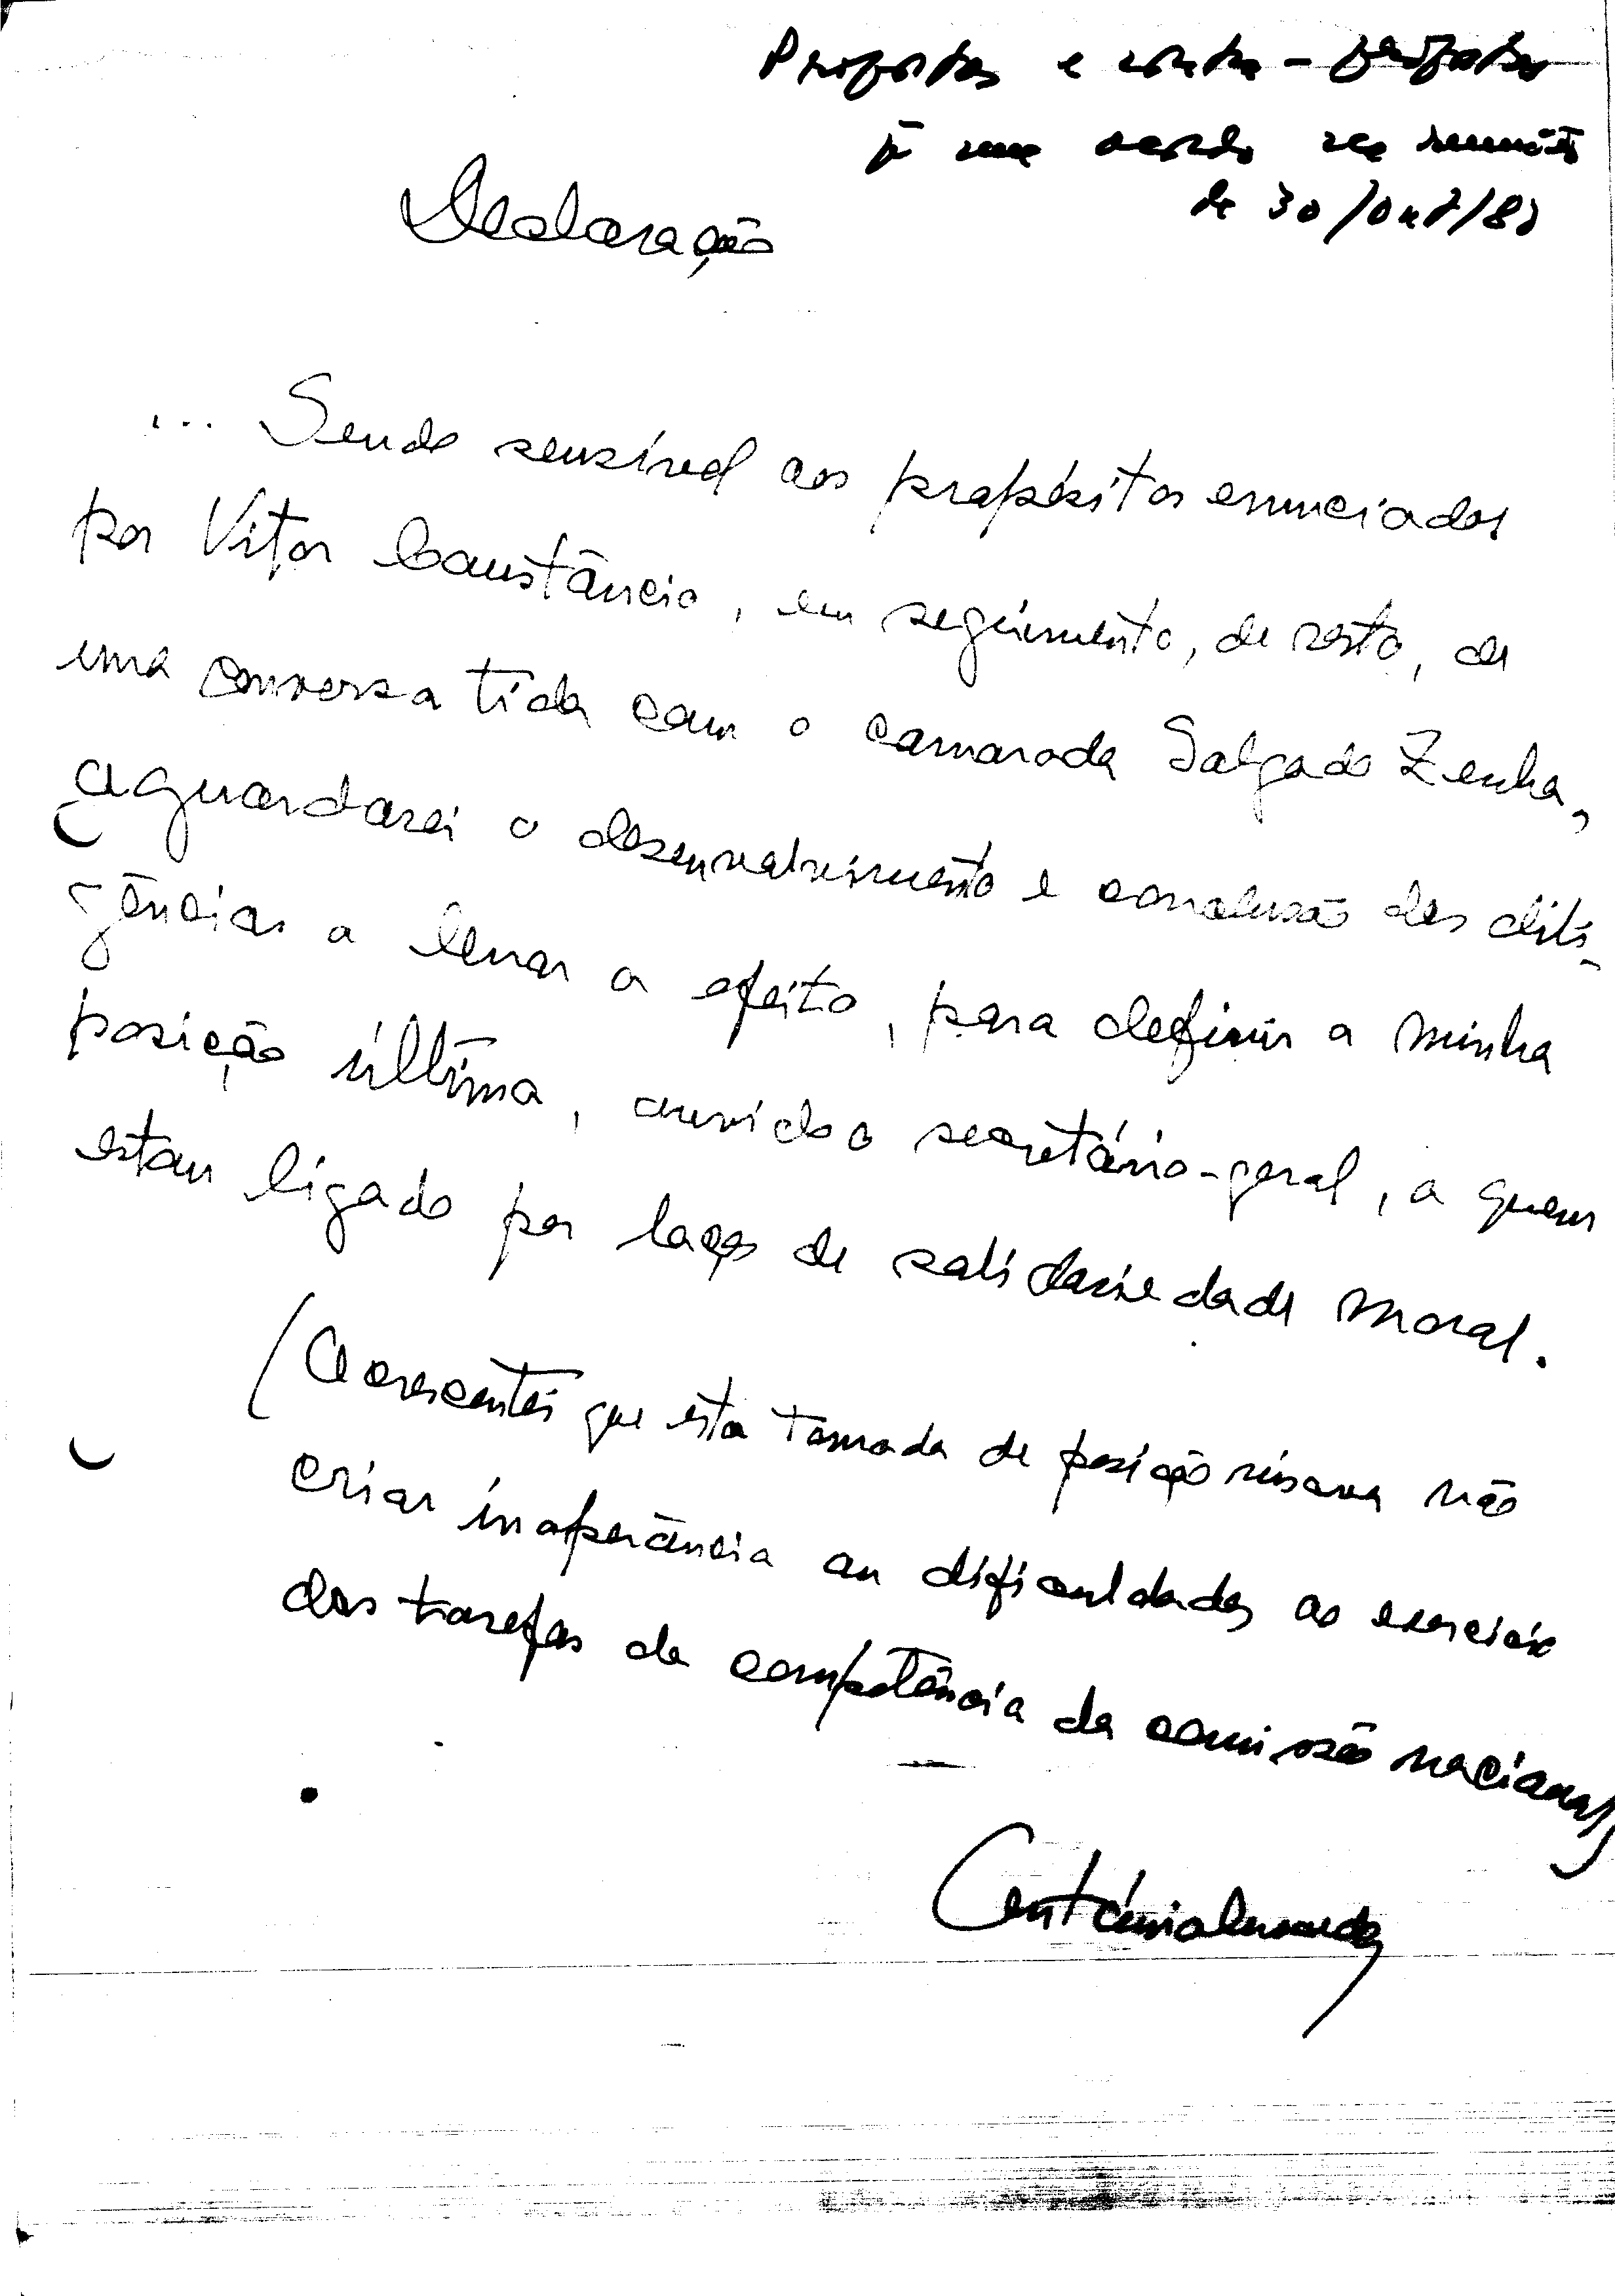 Propostas e contra-propostas
p/ um acordo na reunião
de 30/Out/80
Declaração
... Sendo sensível aos propósitos enunciados
por Vitor Constâncio, em seguimento, de resto, de
uma conversa tida com o camarada Salgado Zenha,
aguardarei o desenvolvimento e conclusão das dili-
gências a levar a efeito, para definir a minha
posição última, ouvido o secretário-geral, a quem
estou ligado por laços de solidariedade moral.
(Acrescentei que esta tomada de posição visava não
criar inoperância ou dificuldades ao exercício
das tarefas da competência da comissão nacional)